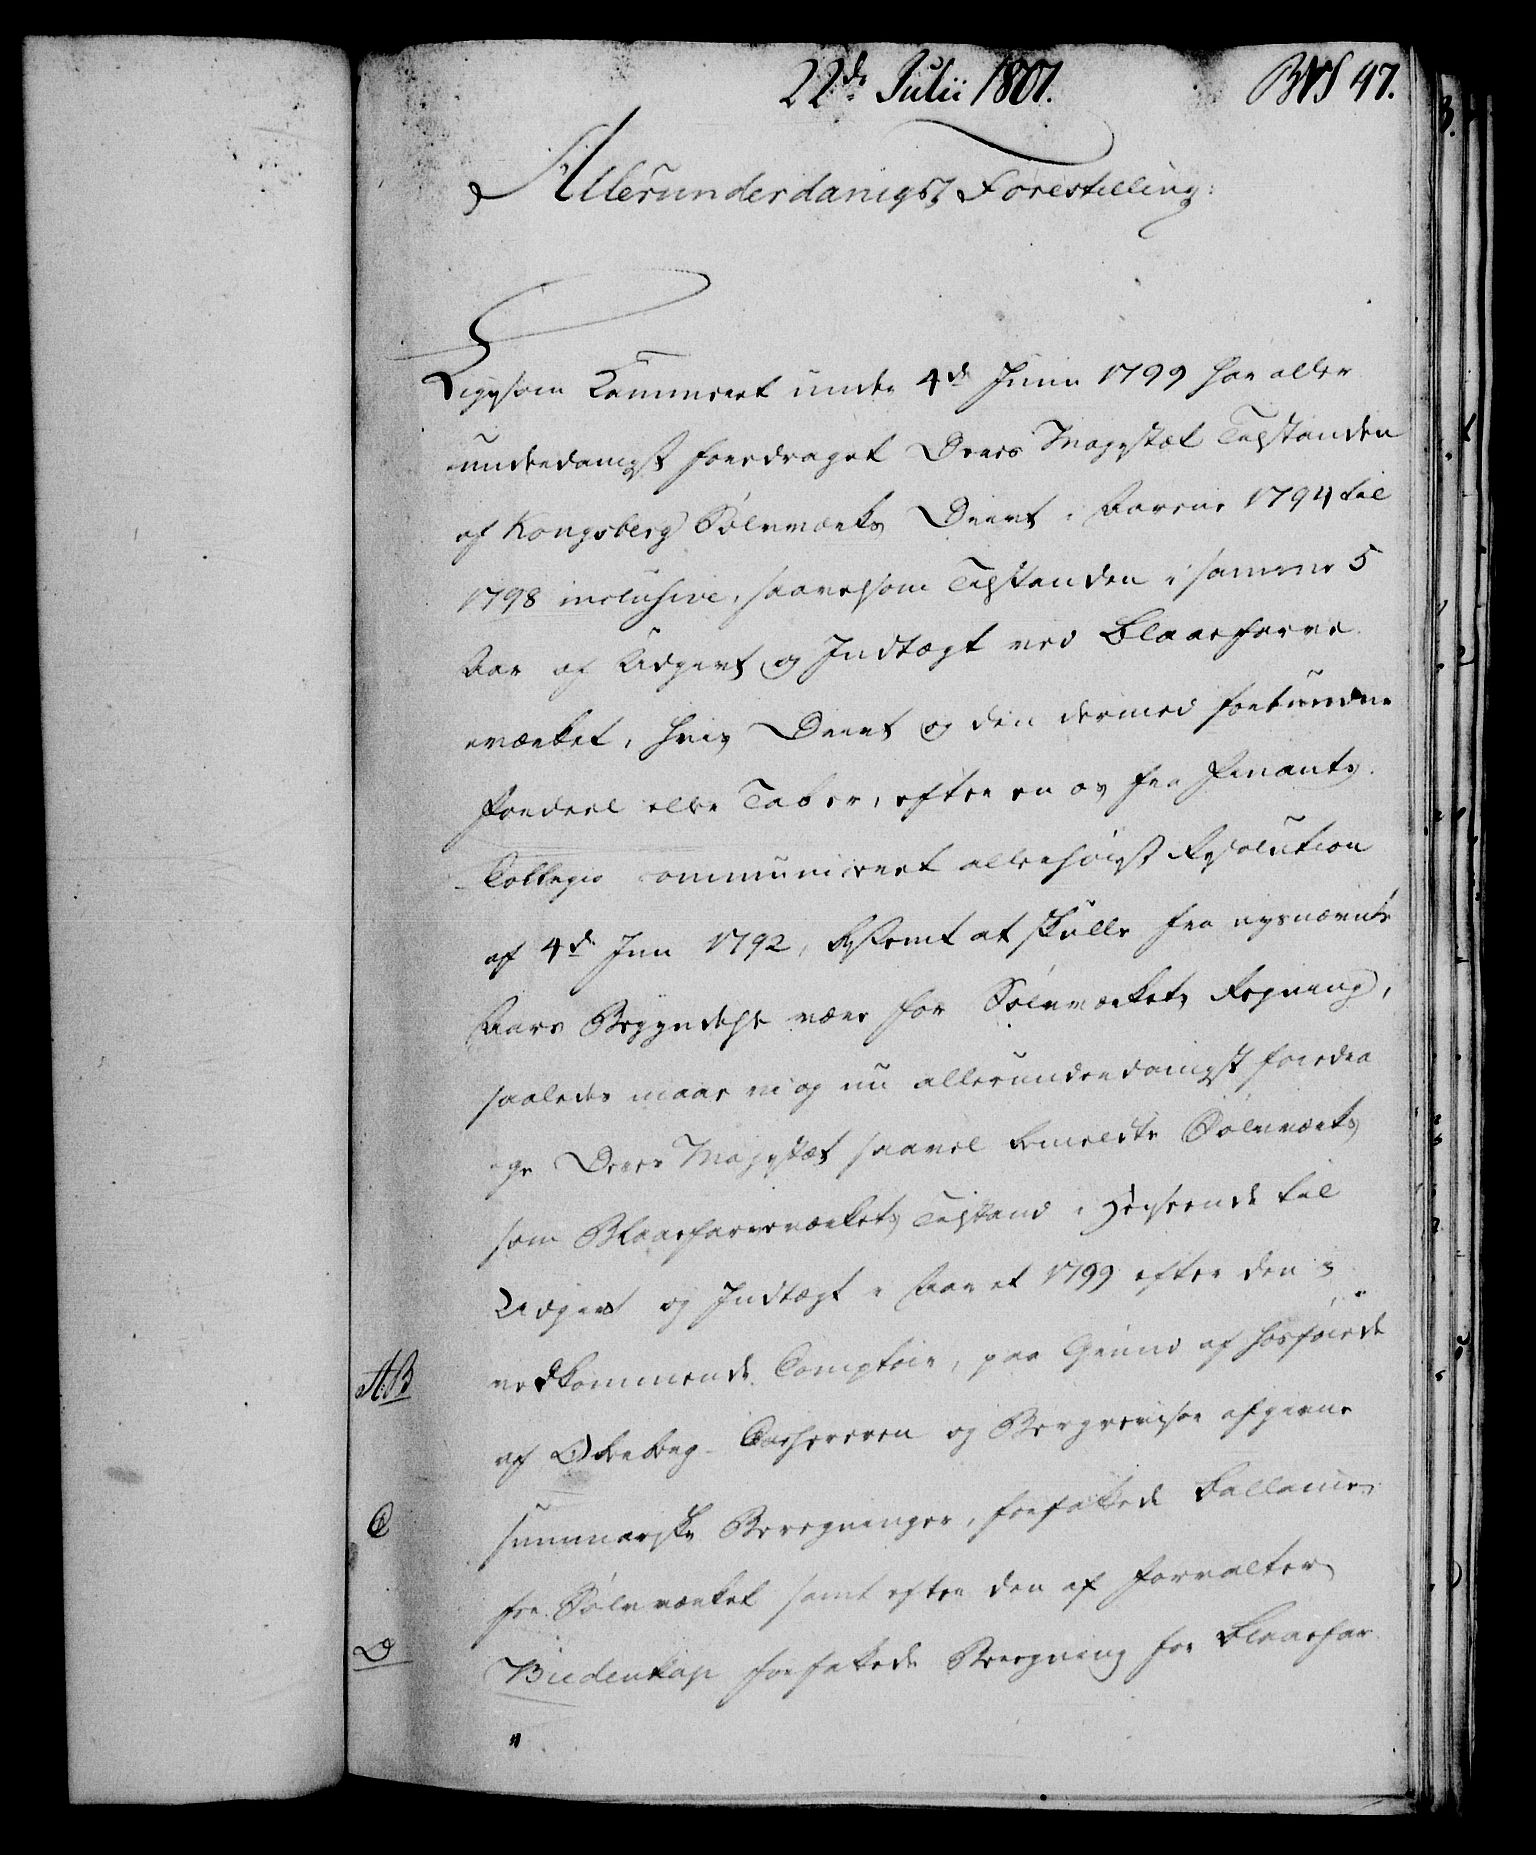 22de Julii 1801. BWS 47.
Allerunderdanigst Forestilling:
Ligesom Kammeret under 4de Junii 1799 har aller
underdanigst foredraget Deres Majestæt Tilstanden
af Kongsberg Sølvværks Drivt i Aarene 1794 til
1798 inclusive, saavelsom Tilstanden i samme 5
Aar af Udgivt og Indtægt ved Blaaefarve
værket, hvis Drivt og den dermed forbundne
Fordeel eller Tab er, efter en os fra Finants
Collegio communiceret allerhøieste Resolution
af 4de Jun 1792, bestemt at skulle fra nysnævnte
Aars Begyndelse være for Sølvværkets Regning,
saaledes maae vi og nu allerunderdanigst foredra
ge Deres Majestæt saavel bemeldte Sølvværks
som Blaaefarveværkets Tilstand i Henseende til
Udgivt og Indtægt i Aaret 1799 efter den i
vedkommende Comptoir, paa Grund af hosføiede
A.B
af Oberberg-Cassereren og Bergrevisor afgivne
summariske Beregninger, forfattede Ballance
C
for Sølvværket samt efter den af Forvalter
Biedenkap forfattede Beregning for Blaaefar
D